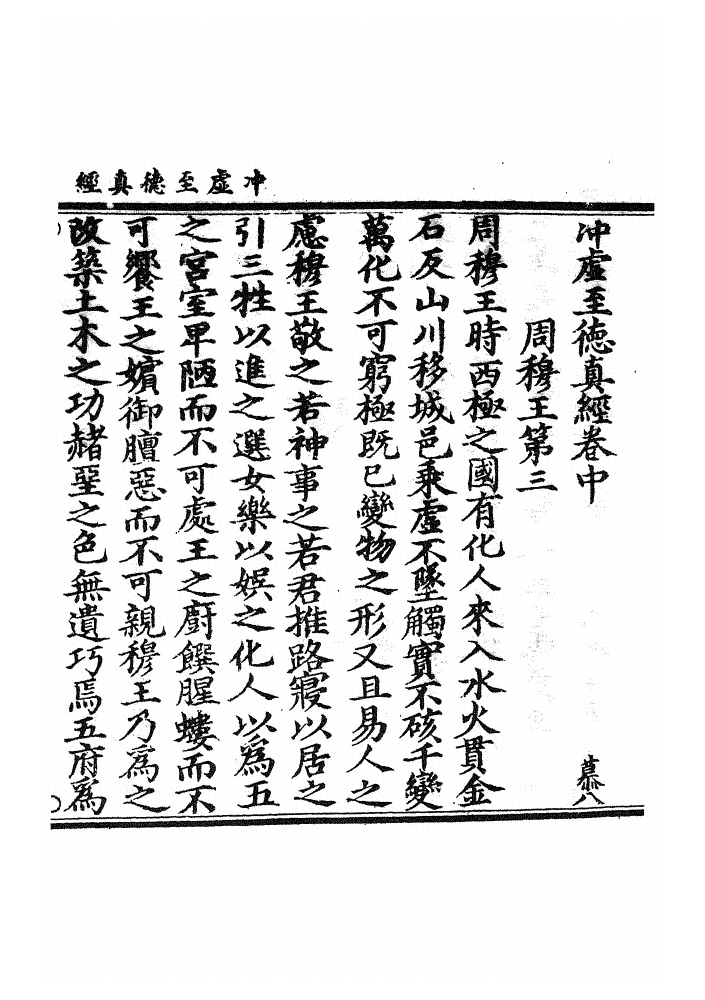 冲虛至德真經
冲虛至德真經卷中
慕八
周穆王第三
周穆王時西極之國有化人來入水火貫金
石反山川移城邑乘虛不墜觸實不硋千變
萬化不可窮極既已變物之形又且易人之
慮穆王敬之若神事之若君推路寢以居之
引三牲以進之選女樂以娛之化人以為五
之宮室卑陋而不可處王之廚饌腥螻而不
可饗王之嬪御膻惡而不可親穆王乃為之
改築土木之功赭堊之色無遺巧焉五府為